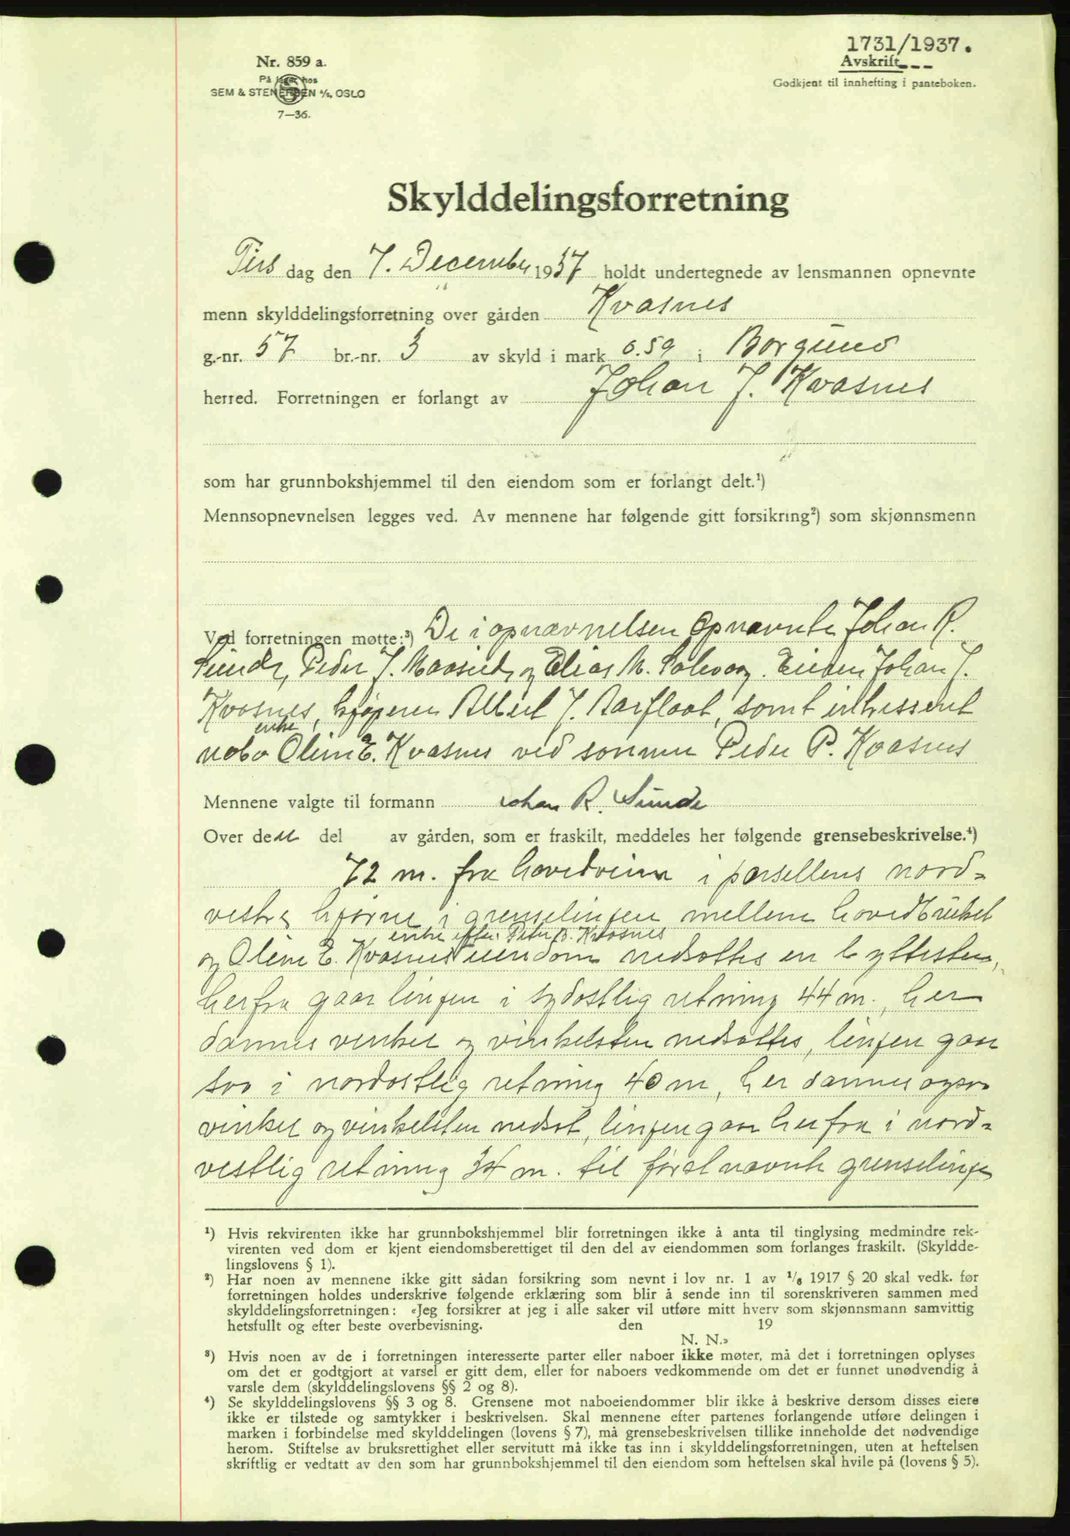 1731/1937.
Avskrift
Godkjent til innhefting i panteboken.
Nr. 859 a.
På lager hos
SEM & STENERSEN A/S, OSLO
7—36.
Skylddelingsforretning
Tirs dag den 7. December 1937 holdt undertegnede av lensmannen opnevnte
menn skylddelingsforretning over gården Kvasnes
g.-nr. 57 br.-nr. 3 av skyld i mark 0.59 i Borgund
herred. Forretningen er forlangt av Johan J. Kvasnes
som har grunnbokshjemmel til den eiendom som er forlangt delt.¹)
Mennsopnevnelsen legges ved. Av mennene har følgende gitt forsikring²) som skjønnsmenn
Ved forretningen møtte:³) De i opnævnelsen opnævnte Johan R.
Sunde, Peder J. og Elias M. Solevåg. Eieren Johan J.
Kvasnes, kjøperen Albert J. Aarflot, samt interessert
nabo enke Oline E. Kvasnes ved sønnen Peder P. Kvasnes
Mennene valgte til formann Johan R. Sunde
Over den del av gården, som er fraskilt, meddeles her følgende grensebeskrivelse.⁴)
72 m. fra hovedveien i parsellens nord-
vestre hjørne i grenselinjen mellem hovedbruket
og Oline E. Kvasnes enke efter Peter B. Kvasnes eiendom nedsættes en byttesten,
herfra gaar linjen i sydostlig retning 44 m., her
dannes vinkel og vinkelsten nedsættes, linjen gaar
saa i nordostlig retning 40 m, her dannes ogsaa
vinkel og vinkelsten nedsat, linjen gaar herfra i nord-
vestlig retning 34 m. til først nævnte grenselinje
¹) Hvis rekvirenten ikke har grunnbokshjemmel blir forretningen ikke å anta til tinglysing medmindre rek-
virenten ved dom er kjent eiendomsberettiget til den del av eiendommen som forlanges fraskilt. (Skyldde-
lingslovens § 1).
²) Har noen av mennene ikke gitt sådan forsikring som nevnt i lov nr. 1 av 1/6 1917 § 20 skal vedk. før
forretningen holdes underskrive følgende erklæring som blir å sende inn til sorenskriveren sammen med
skylddelingsforretningen: «Jeg forsikrer at jeg i alle saker vil utføre mitt hverv som skjønnsmann samvittig
hetsfullt og efter beste overbevisning. den 19
N. N.»
³) Hvis noen av de i forretningen interesserte parter eller naboer ikke møter, må det i forretningen oplyses
om det er godtgjort at varsel er gitt dem, eller for naboers vedkommende om det er funnet unødvendig å
varsle dem (skylddelingslovens §§ 2 og 8).
⁴) Se skylddelingslovens §§ 3 og 8. Grensene mot naboeiendommer blir ikke å beskrive dersom disses eiere
ikke er tilstede og samtykker i beskrivelsen. Skal mennene efter partenes forlangende utføre delingen i
marken i forbindelse med skylddelingen (lovens § 7), må grensebeskrivelsen tillike inneholde det nødvendige
herom. Stiftelse av bruksrettighet eller servitutt må ikke tas inn i skylddelingsforretningen, uten at heftelsen
skriftlig er vedtatt av den som har grunnbokshjemmel til den eiendom som heftelsen skal hvile på (lovens § 5).